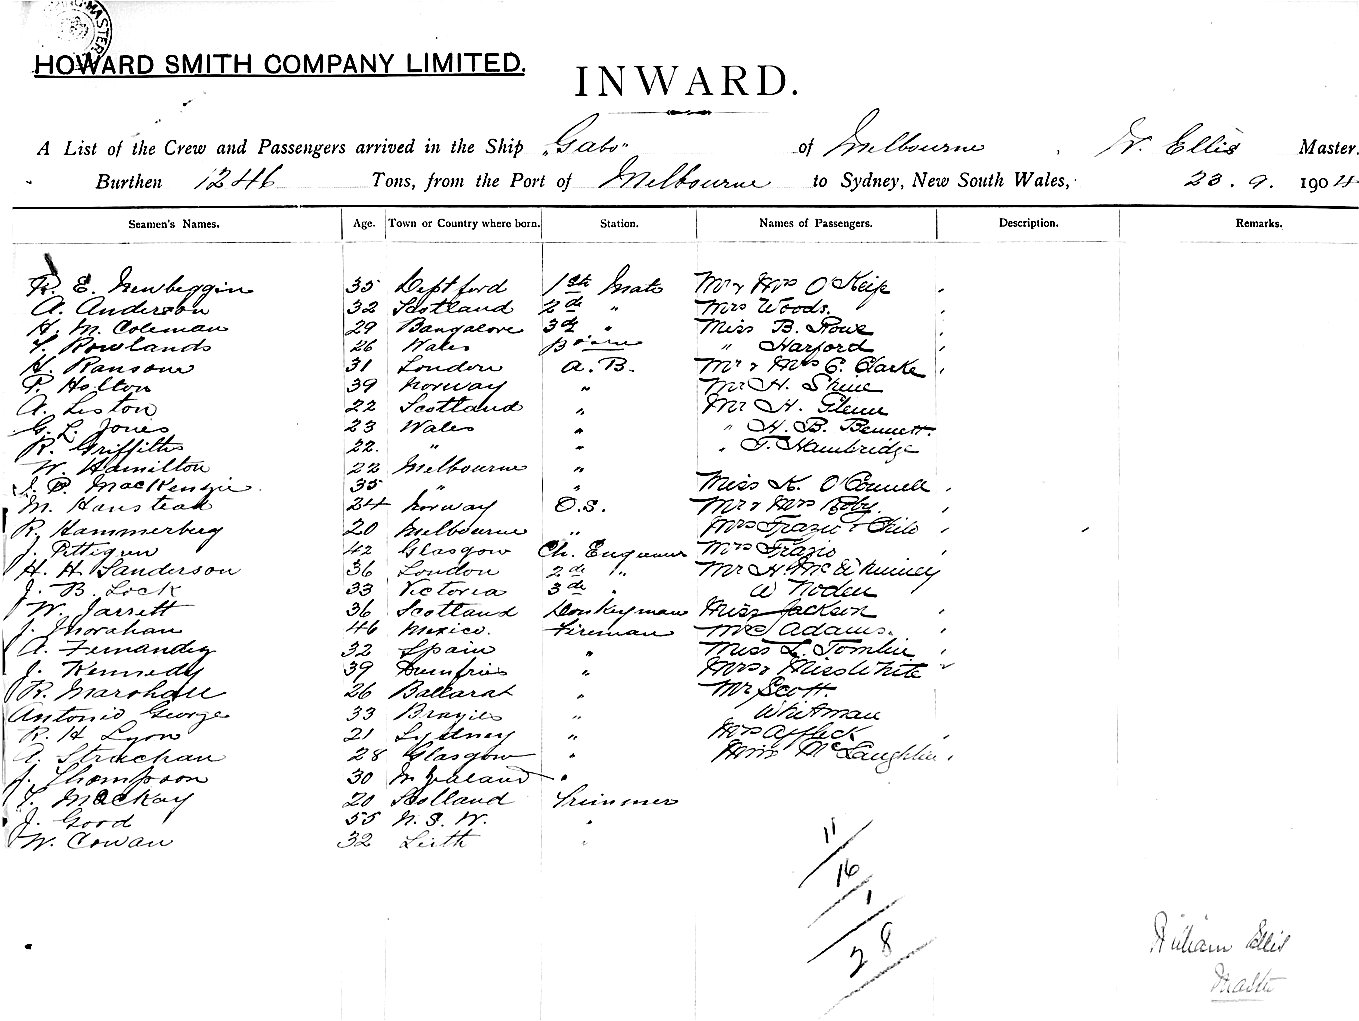 HOWARD SMITH COMPANY LIMITED.
INWARD.
A List of the Crew and Passengers arrived in the Ship "Gabo" of Melbourne, W. Ellis Master,
Burthen 1246 Tons, from the Port of Melbourne to Sydney, New South Wales, 23.9. 1904
Seamen's Names. Age. Town or Country where born. Station. Names of Passengers. Description. Remarks.
R. E. Newbeggin 35 Deptford 1st Mate Mr & Mrs O'Keife
A. Anderson 32 Scotland 2d " Mrs Woods.
H. M. Coleman 29 Bangalore 3d " Miss B. Rowe
Rowlands 26 Wales " Harford
H. Ransom 31 London A.B. Mr & Mrs C. Clarke
P. Holton 39 Norway " Mr H. Shine
A. Liston 22 Scotland " Mr H. Glenn
G. L. Jones 23 Wales " " H. B. Bennett.
R. Griffiths 22. " " " T. Hambridge
W. Hamilton 22 Melbourne "
J. P. MacKenzie 35 " " Miss K. O'Connell
M. Hanstead 24 Norway O.S. Mr & Mrs Roby
R. Hammerberg 20 Melbourne " Mrs Frazio & Child
J. Pettigrew 42 Glasgow Ch. Engineer Mrs Frazio
H. H. Sanderson 36 London 2d " Mr H.
J. B. Lock 33 Victoria 3d " W Noden
W. Jarrett 36 Scotland Donkeyman Miss Jackson
J. 46 Mexico. Fireman Adams.
A. Fernandez 32 Spain " Miss L. Tomlin
J. Kennedy 39 Dumfries " Mrs & Miss White
R. Marshall 26 Ballarat " Mr Scott.
Antonio George 33 Brazies " Whitman
R. H. Lyon 21 Sydney " Mrs Affleck
A. Strachan 28 Glasgow " Miss McLaughlin
J. Thompson 30 N Zealand "
MacKay 20 Scotland Trimmer
J. Good 55 N. S. W. "
W. Cowan 32 Leith "
11
16
1
28
William Ellis
Master